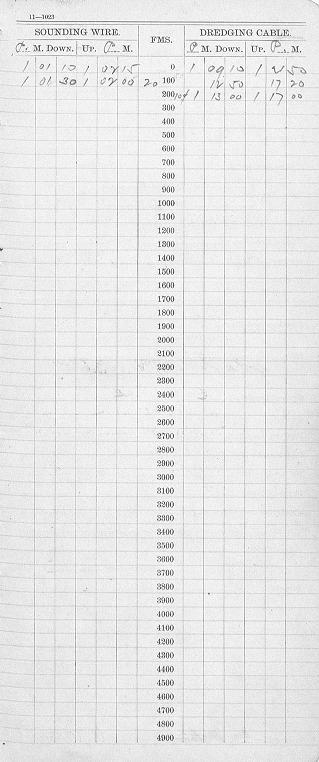 11—1023
SOUNDING WIRE. FMS. DREDGING CABLE.
P. M. DOWN. UP. P. M. P M. DOWN. UP. P. M.
1 01 10 1 02 15 0 1 09 10 1 21 50
1 01 30 1 02 00 20 100 12 50 17 20
200 104 1 13 00 1 17 00
300
400
500
600
700
800
900
1000
1100
1200
1300
1400
1500
1600
1700
1800
1900
2000
2100
2200
2300
2400
2500
2600
2700
2800
2900
3000
3100
3200
3300
3400
3500
3600
3700
3800
3900
4000
4100
4200
4300
4400
4500
4600
4700
4800
4900